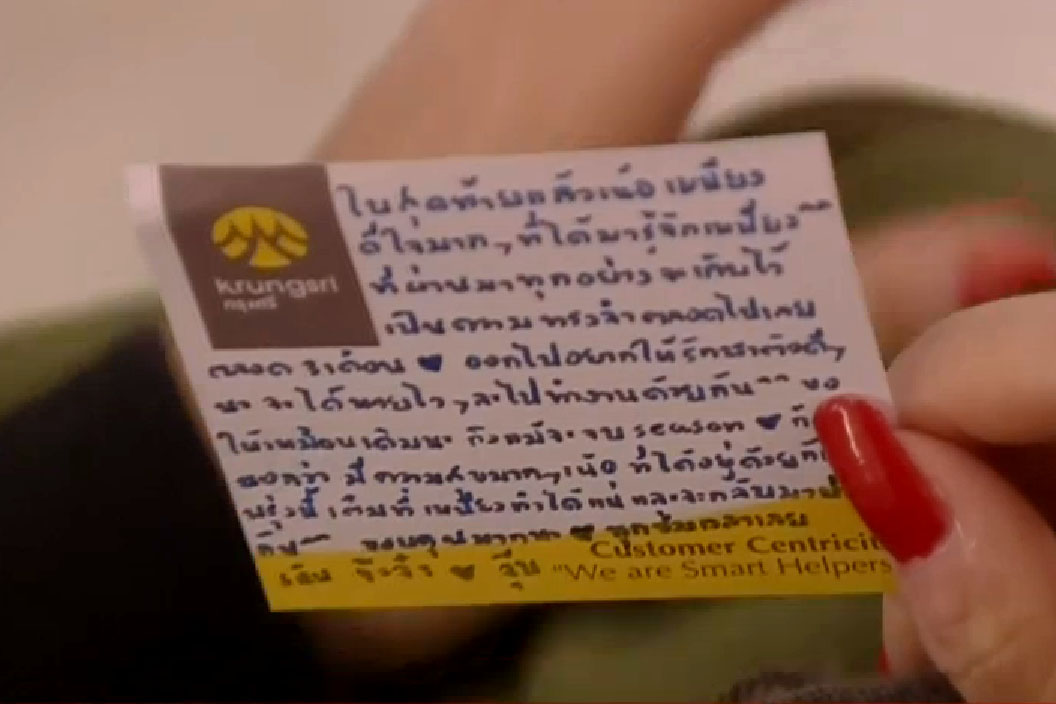 krungsri
กรุงศรี
ใบสุดท้ายแล้วเน้อ เหมียง
ดีใจมาก ๆ ที่ได้มารู้จักเหมียง ^^
ที่ผ่านมาทุกอย่าง จะเก็บไว้
เป็นความทรงจำตลอดไปเลย
ตลอด 3 เดือน ♥ ออกไปอยากให้รักษาตัวดี ๆ
นะ จะได้หายไว ๆ จะไปทำงานด้วยกัน ^^ ขอ
ให้เหมือนเดิมนะ ถึงแม้จะจบ season ♥
บอกว่า มีความสุขมาก ๆ เน้อ ที่ได้อยู่ด้วยกัน
พรุ่งนี้ เต็มที่
กัน ^^ ขอบคุณมากนะ ♥
Customer Centricit
♥ จุ๊บ "We are Smart Helpers